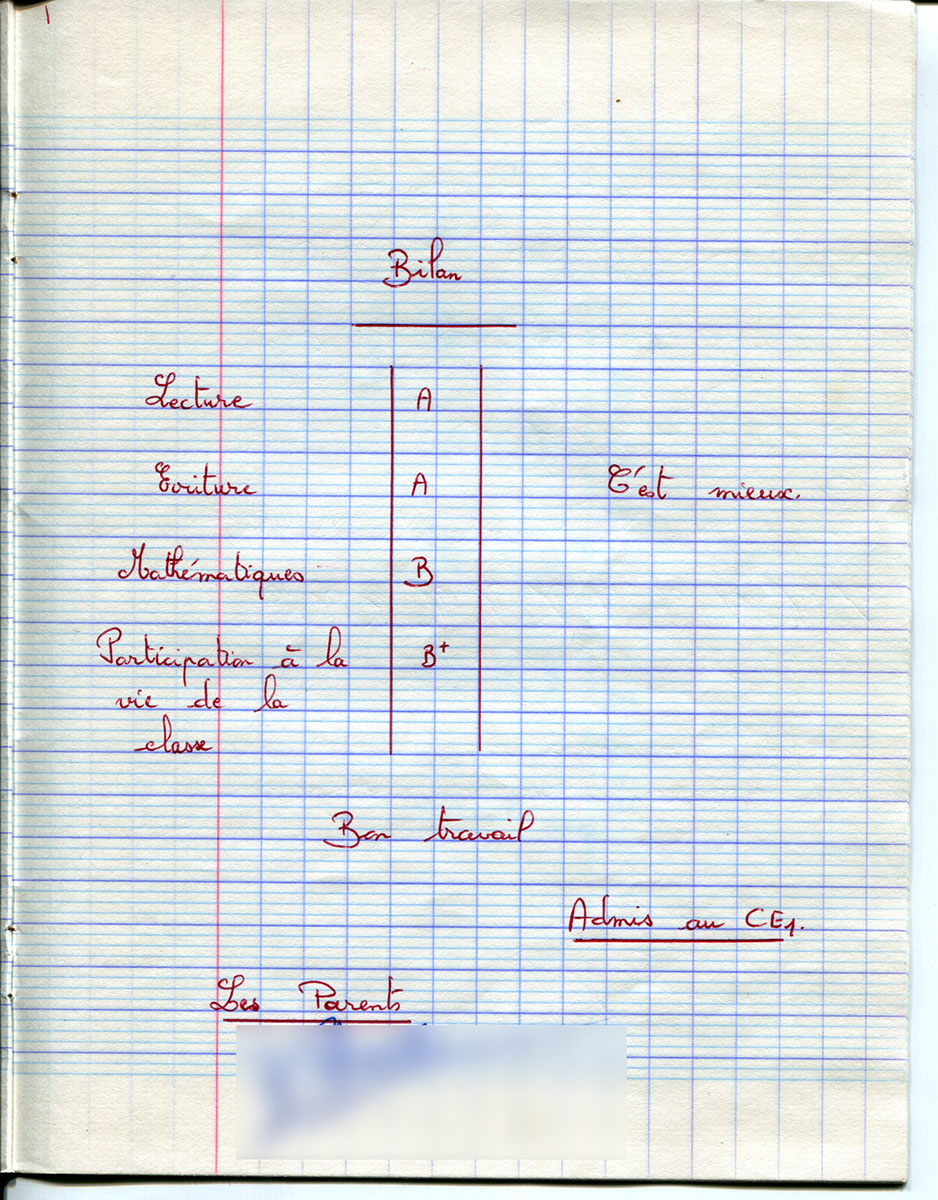 Bilan
Lecture A
Ecriture A C'est mieux.
Mathématiques B
Participation à la B+
vie de la
classe
Bon travail
Admis au CE1.
Les Parents